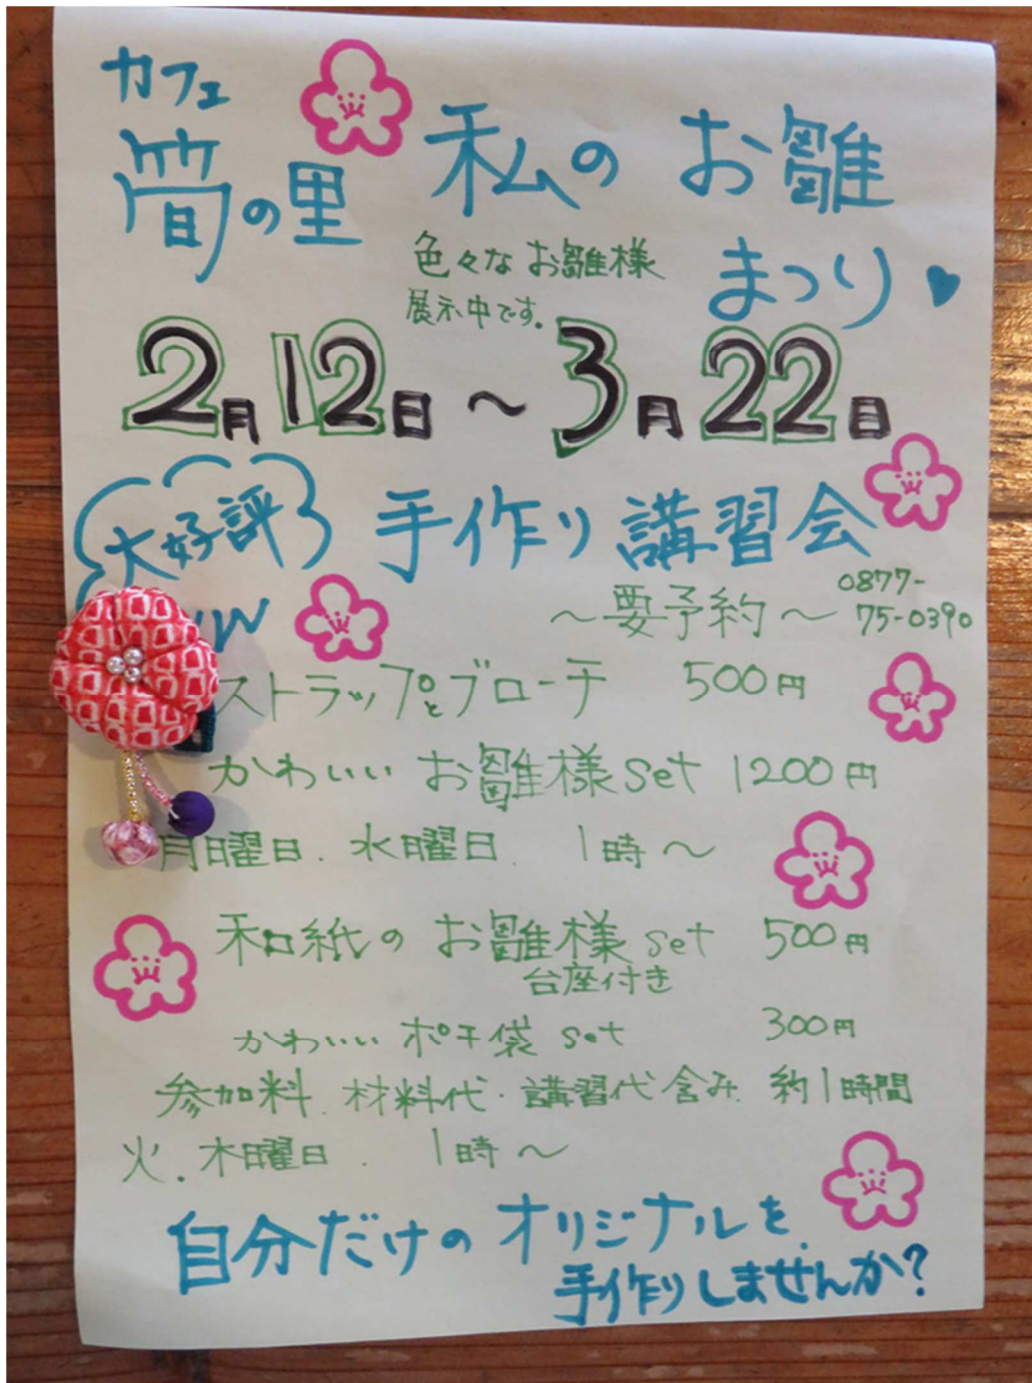 カフェ
筍の里
私のお雛
まつり
色々なお雛様
展示中です。
2月12日～3月22日
大好評
手作り講習会
～要予約～
0877-
75-0390
ストラップとブローチ 500円
かわいい お雛様set 1200円
月曜日. 水曜日. 1時～
和紙のお雛様set 500円
台座付き
かわいい ポチ袋 set 300円
参加料. 材料代・講習代含み. 約1時間
火. 木曜日. 1時～
自分だけのオリジナルを
手作りしませんか?